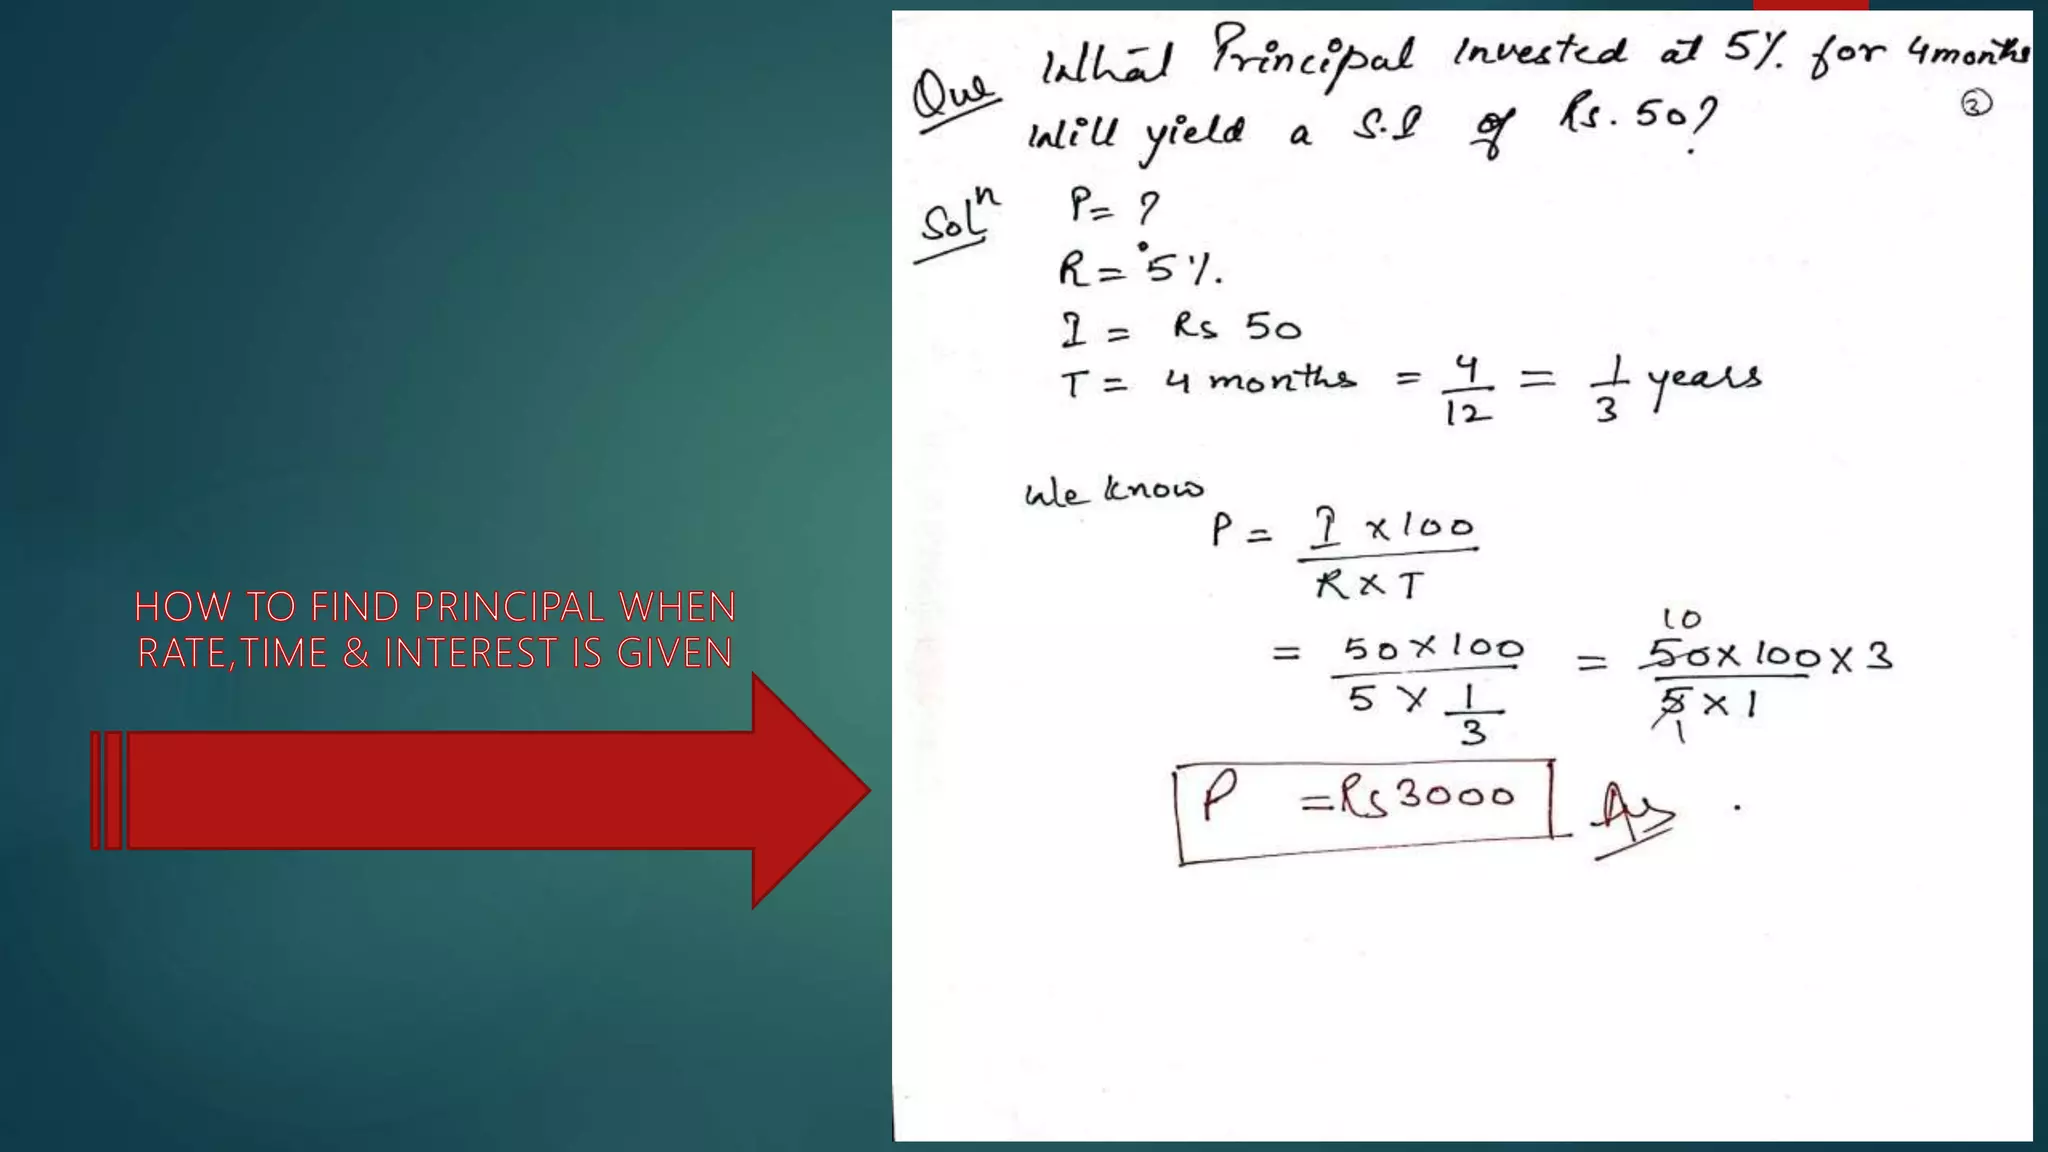 HOW TO FIND PRINCIPAL WHEN
RATE,TIME & INTEREST IS GIVEN
Que What Principal Invested at 5% for 4 months
will yield a S.I of Rs. 50?
②
Solⁿ P = ?
R = 5%.
I = Rs 50
T = 4 months = 4/12 = 1/3 years
We know
P = I × 100 / R × T
= 50 × 100 / 5 × 1/3 = 50 × 100 × 3 / 5 × 1
10
1
P = Rs 3000 Ans.